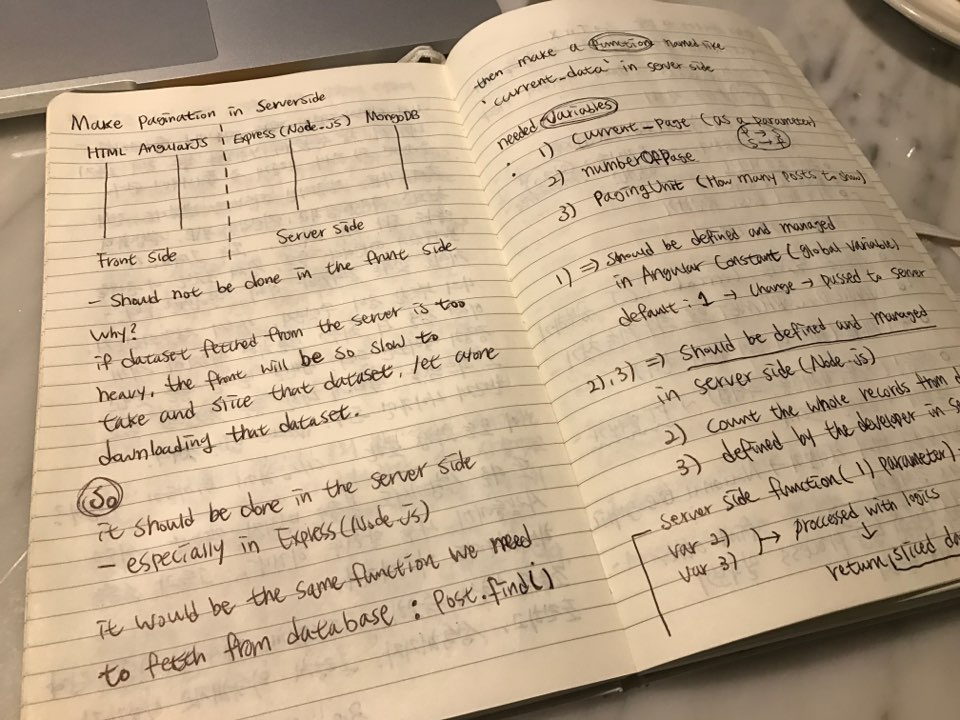 Make Pagination in Serverside
HTML AngularJS Express (Node.js) MongoDB
Front side Server side
- Should not be done in the front side
Why?
if dataset fetched from the server is too
heavy, the front will be so slow to
take and slice that dataset, let alone
downloading that dataset.
So
it should be done in the server side
- especially in Express (Node.js)
it would be the same function we need
to fetch from database : Post.find()
then make a function named like
'current_data' in server side
needed variables
: 1) current_page (as a parameter)
2) numberOfPage
3) PagingUnit (How many posts to show)
1) ⇒ should be defined and managed
in Angular Constant (global variable)
default : 1 → change → passed to server
2), 3) ⇒ Should be defined and managed
in server side (Node.js)
2) count the whole records from
3) defined by the developer in
server side function( 1) parameter)
var 2)
var 3) → proccessed with logics
↓
return sliced